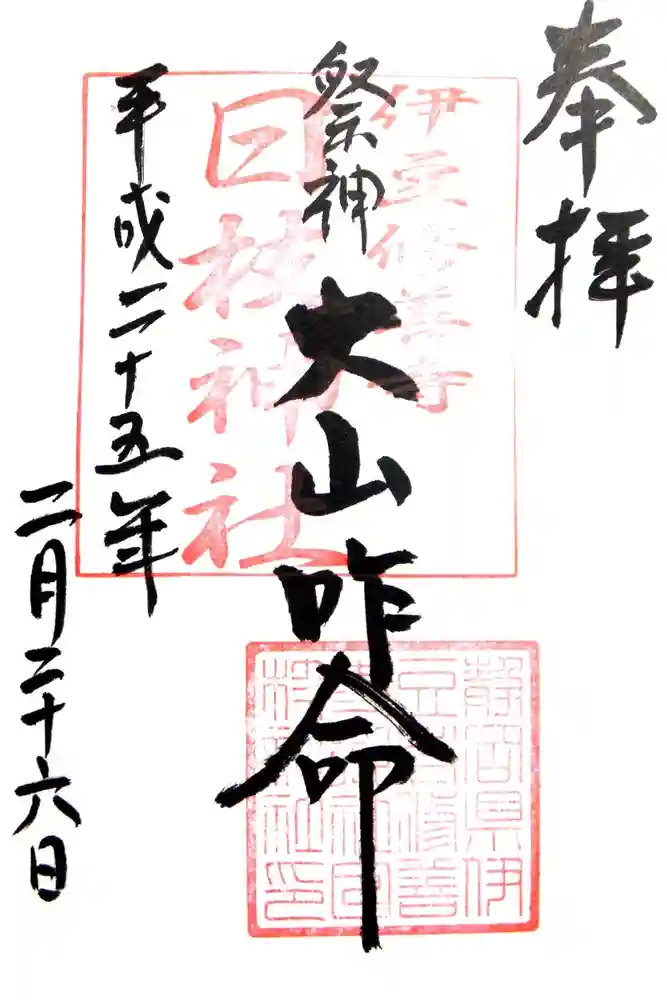 奉拝
伊豆修善寺
祭神 大山咋命
日枝神社
平成二十五年
二月二十六日
静岡県伊
枝神社印